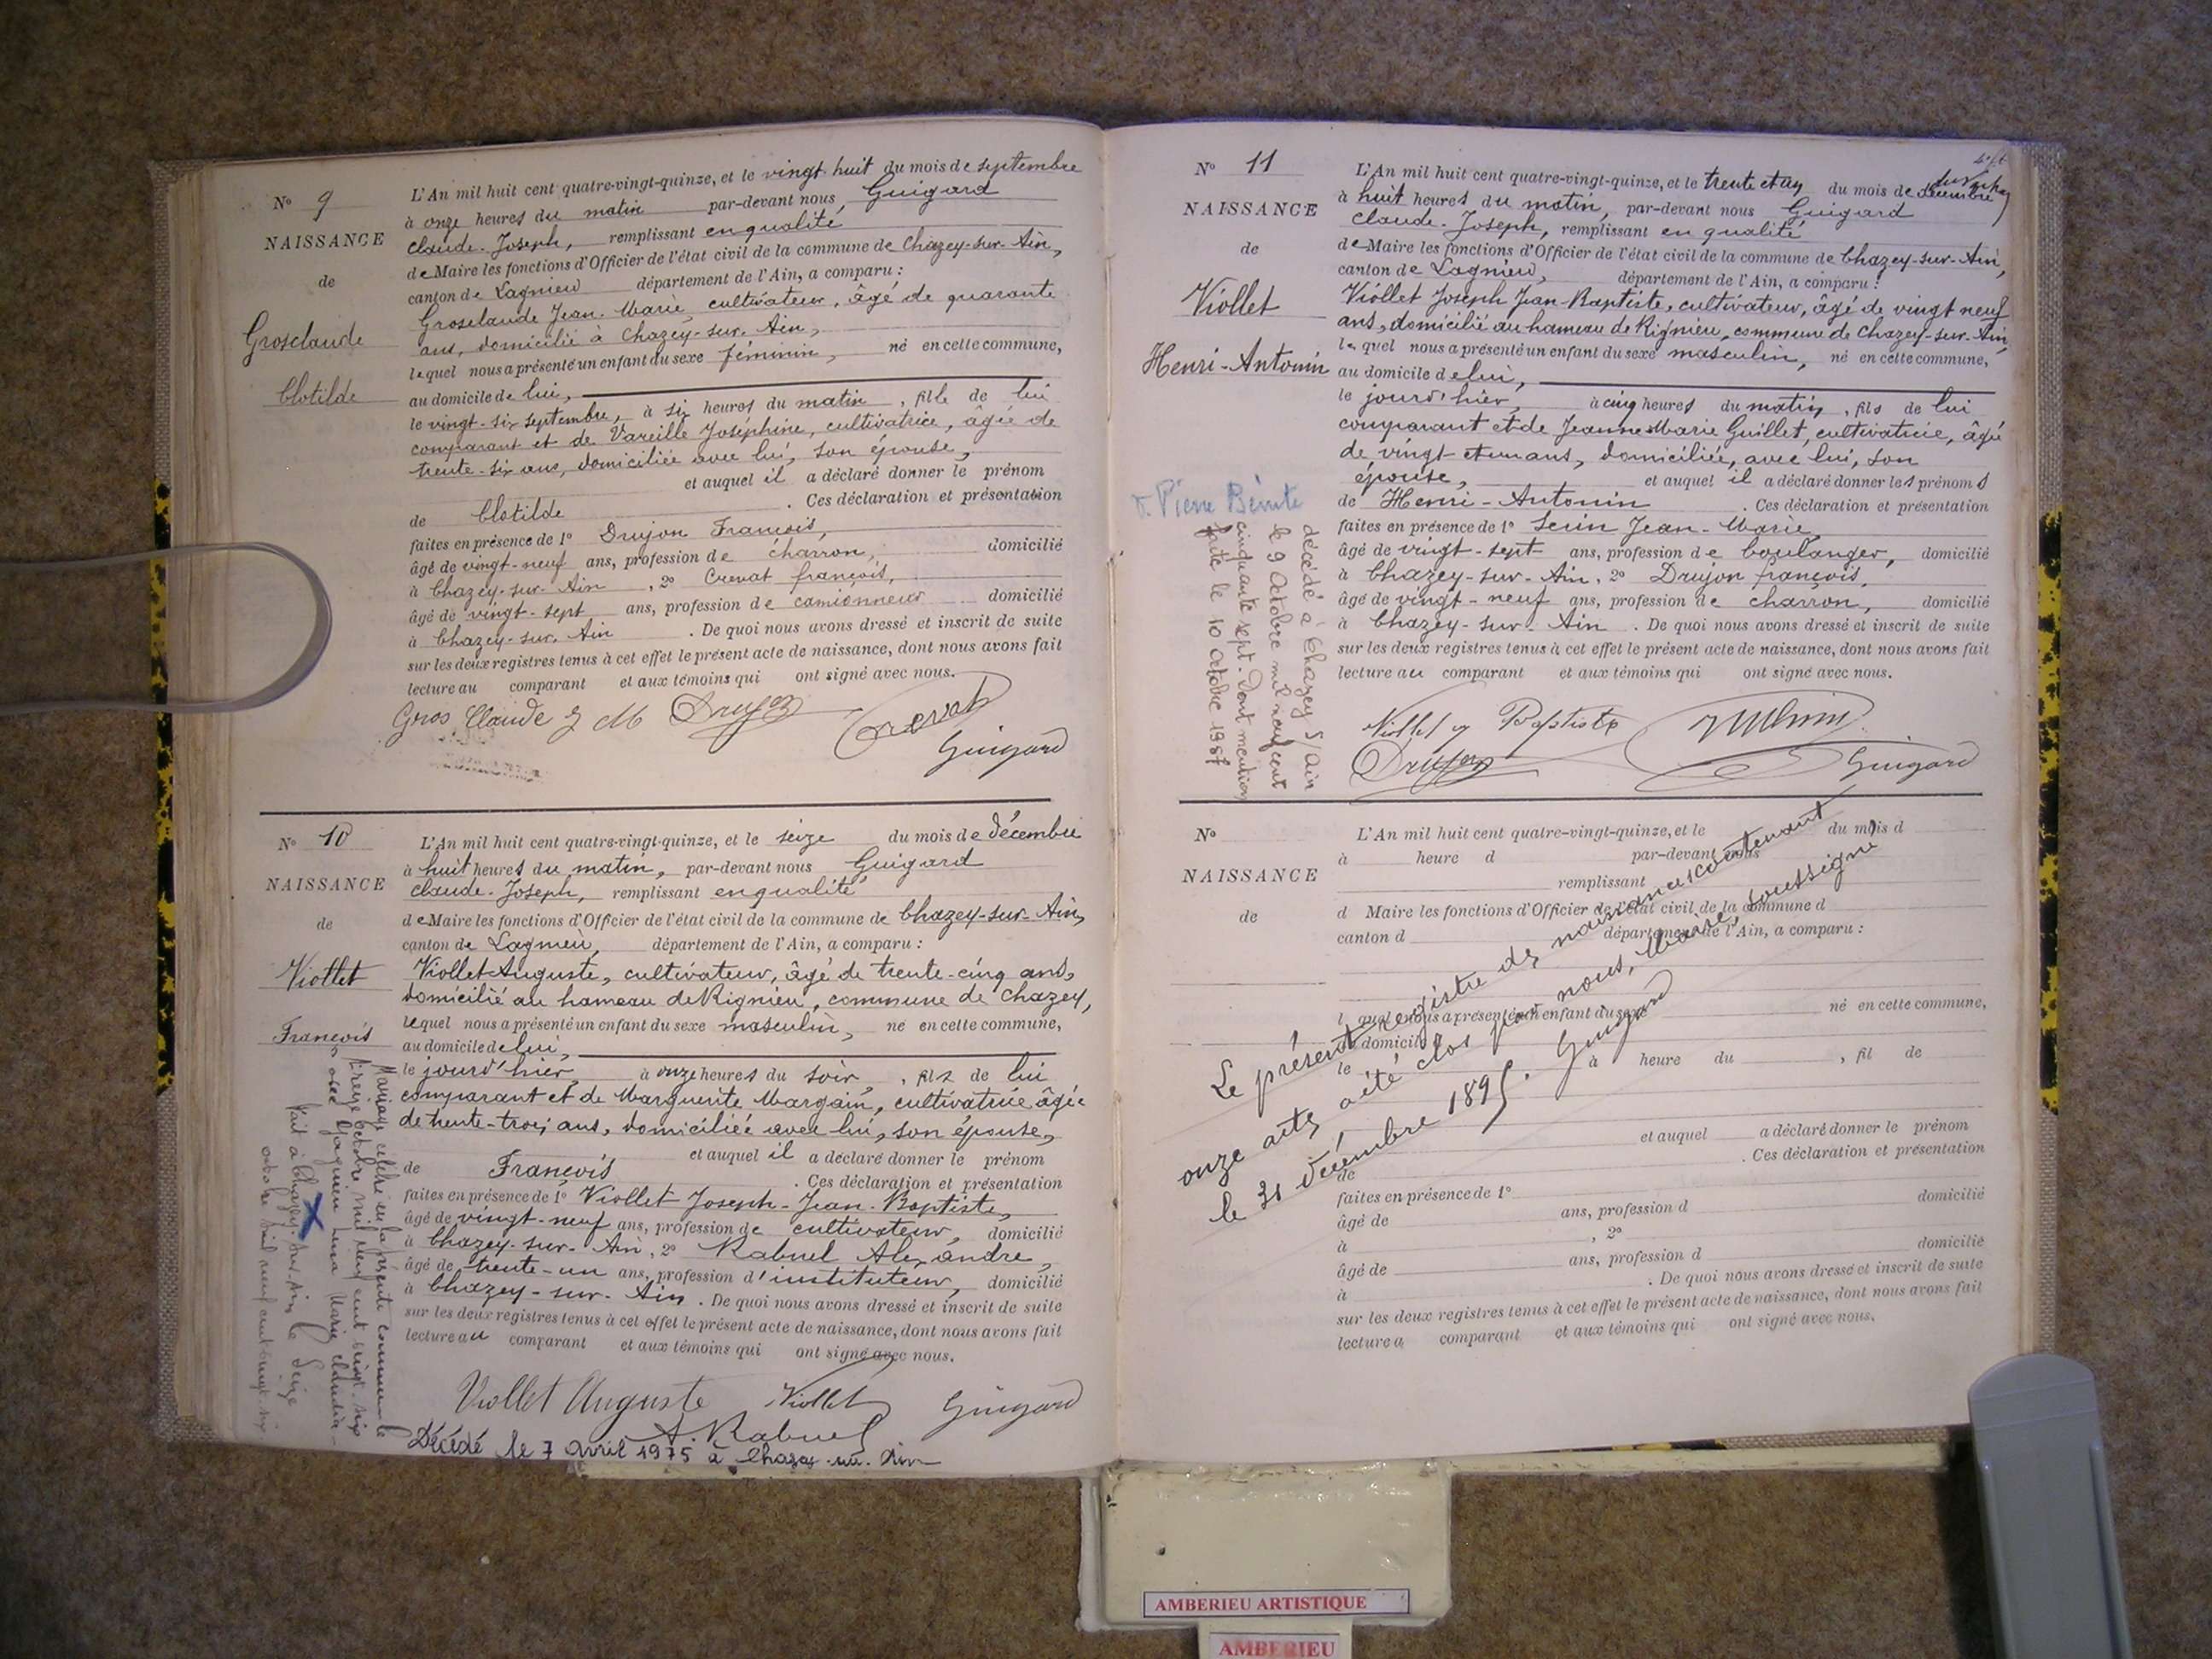 N° 9
NAISSANCE
de
Grosclaude
Clotilde
L'An mil huit cent quatre-vingt-quinze, et le vingt-huit du mois de septembre
à onze heures du matin par-devant nous, Guigard
Claude-Joseph, remplissant en qualité
de Maire les fonctions d'Officier de l'état civil de la commune de Chazey-sur-Ain,
canton de Lagnieu département de l'Ain, a comparu :
Grosclaude Jean-Marie, cultivateur, âgé de quarante
ans, domicilié à Chazey-sur-Ain,
lequel nous a présenté un enfant du sexe féminin, né en cette commune,
au domicile de lui,
le vingt-six septembre, à six heures du matin, fille de lui
comparant et de Vareille Joséphine, cultivatrice, âgée de
trente-six ans, domiciliée avec lui, son épouse,
et auquel il a déclaré donner le prénom
de Clotilde . Ces déclaration et présentation
faites en présence de 1° Drujon François,
âgé de vingt-neuf ans, profession de charron, domicilié
à Chazey-sur-Ain, 2° Crevat françois,
âgé de vingt-sept ans, profession de camionneur domicilié
à Chazey-sur-Ain . De quoi nous avons dressé et inscrit de suite
sur les deux registres tenus à cet effet le présent acte de naissance, dont nous avons fait
lecture au comparant et aux témoins qui ont signé avec nous.
Gros Claude J M Drujon Crevat
Guigard
N° 10
NAISSANCE
de
Viollet
François
L'An mil huit cent quatre-vingt-quinze, et le seize du mois de décembre
à huit heures du matin, par-devant nous Guigard
Claude-Joseph, remplissant en qualité
de Maire les fonctions d'Officier de l'état civil de la commune de Chazey-sur-Ain,
canton de Lagnieu, département de l'Ain, a comparu :
Viollet Auguste, cultivateur, âgé de trente-cinq ans,
domicilié au hameau de Rignieu, commune de Chazey,
lequel nous a présenté un enfant du sexe masculin, né en cette commune,
au domicile de lui,
le jourd'hier, à onze heures du soir, fils de lui
comparant et de Marguerite Margain, cultivatrice âgée
de trente-trois ans, domiciliée avec lui, son épouse,
et auquel il a déclaré donner le prénom
de François . Ces déclaration et présentation
faites en présence de 1° Viollet Joseph-Jean-Baptiste,
âgé de vingt-neuf ans, profession de cultivateur, domicilié
à Chazey-sur-Ain, 2° Rabuel Alexandre,
âgé de trente-un ans, profession d'instituteur, domicilié
à Chazey-sur-Ain . De quoi nous avons dressé et inscrit de suite
sur les deux registres tenus à cet effet le présent acte de naissance, dont nous avons fait
lecture au comparant et aux témoins qui ont signé avec nous.
Viollet Auguste Viollet Guigard
A. Rabuel
Décédé le 7 avril 1975 à Chazey-sur-Ain
Mariage célébré en la présente commune le
treize octobre mil neuf cent vingt six
avec Marie Claudia
Fait à Chazey-sur-Ain le seize
octobre mil neuf cent vingt-six
N° 11
NAISSANCE
de
Viollet
Henri-Antonin
L'An mil huit cent quatre-vingt-quinze, et le trente et un du mois de décembre
à huit heures du matin, par-devant nous Guigard
Claude-Joseph, remplissant en qualité
de Maire les fonctions d'Officier de l'état civil de la commune de Chazey-sur-Ain,
canton de Lagnieu, département de l'Ain, a comparu :
Viollet Joseph Jean-Baptiste, cultivateur, âgé de vingt neuf
ans, domicilié au hameau de Rignieu, commune de Chazey-sur-Ain,
lequel nous a présenté un enfant du sexe masculin, né en cette commune,
au domicile de lui,
le jourd'hier, à cinq heures du matin, fils de lui
comparant et de Jeanne Marie Guillet, cultivatrice, âgée
de vingt et un ans, domiciliée, avec lui, son
épouse, et auquel il a déclaré donner les prénoms
de Henri-Antonin . Ces déclaration et présentation
faites en présence de 1° Serin Jean-Marie
âgé de vingt-sept ans, profession de boulanger, domicilié
à Chazey-sur-Ain, 2° Drujon françois,
âgé de vingt-neuf ans, profession de charron, domicilié
à Chazey-sur-Ain . De quoi nous avons dressé et inscrit de suite
sur les deux registres tenus à cet effet le présent acte de naissance, dont nous avons fait
lecture au comparant et aux témoins qui ont signé avec nous.
Viollet Baptiste
Drujon Guigard
Pierre Bénite
décédé à Chazey S/Ain
le 9 Octobre mil neuf cent
cinquante sept. Dont mention
faite le 10 Octobre 1957
N°
NAISSANCE
de
L'An mil huit cent quatre-vingt-quinze, et le du mois d
à heure d par-devant nous
remplissant
d Maire les fonctions d'Officier de l'état civil de la commune d
canton d département de l'Ain, a comparu :
l quel nous a présenté un enfant du sexe né en cette commune,
au domicile
le à heure du , fil de
et auquel a déclaré donner le prénom
de . Ces déclaration et présentation
faites en présence de 1° domicilié
âgé de ans, profession d
à , 2° domicilié
âgé de ans, profession d
à . De quoi nous avons dressé et inscrit de suite
sur les deux registres tenus à cet effet le présent acte de naissance, dont nous avons fait
lecture a comparant et aux témoins qui ont signé avec nous.
Le présent registre des naissances contenant
onze actes a été clos par nous, Maire, soussigné
le 31 décembre 1895. Guigard
AMBERIEU ARTISTIQUE
AMBERIEU